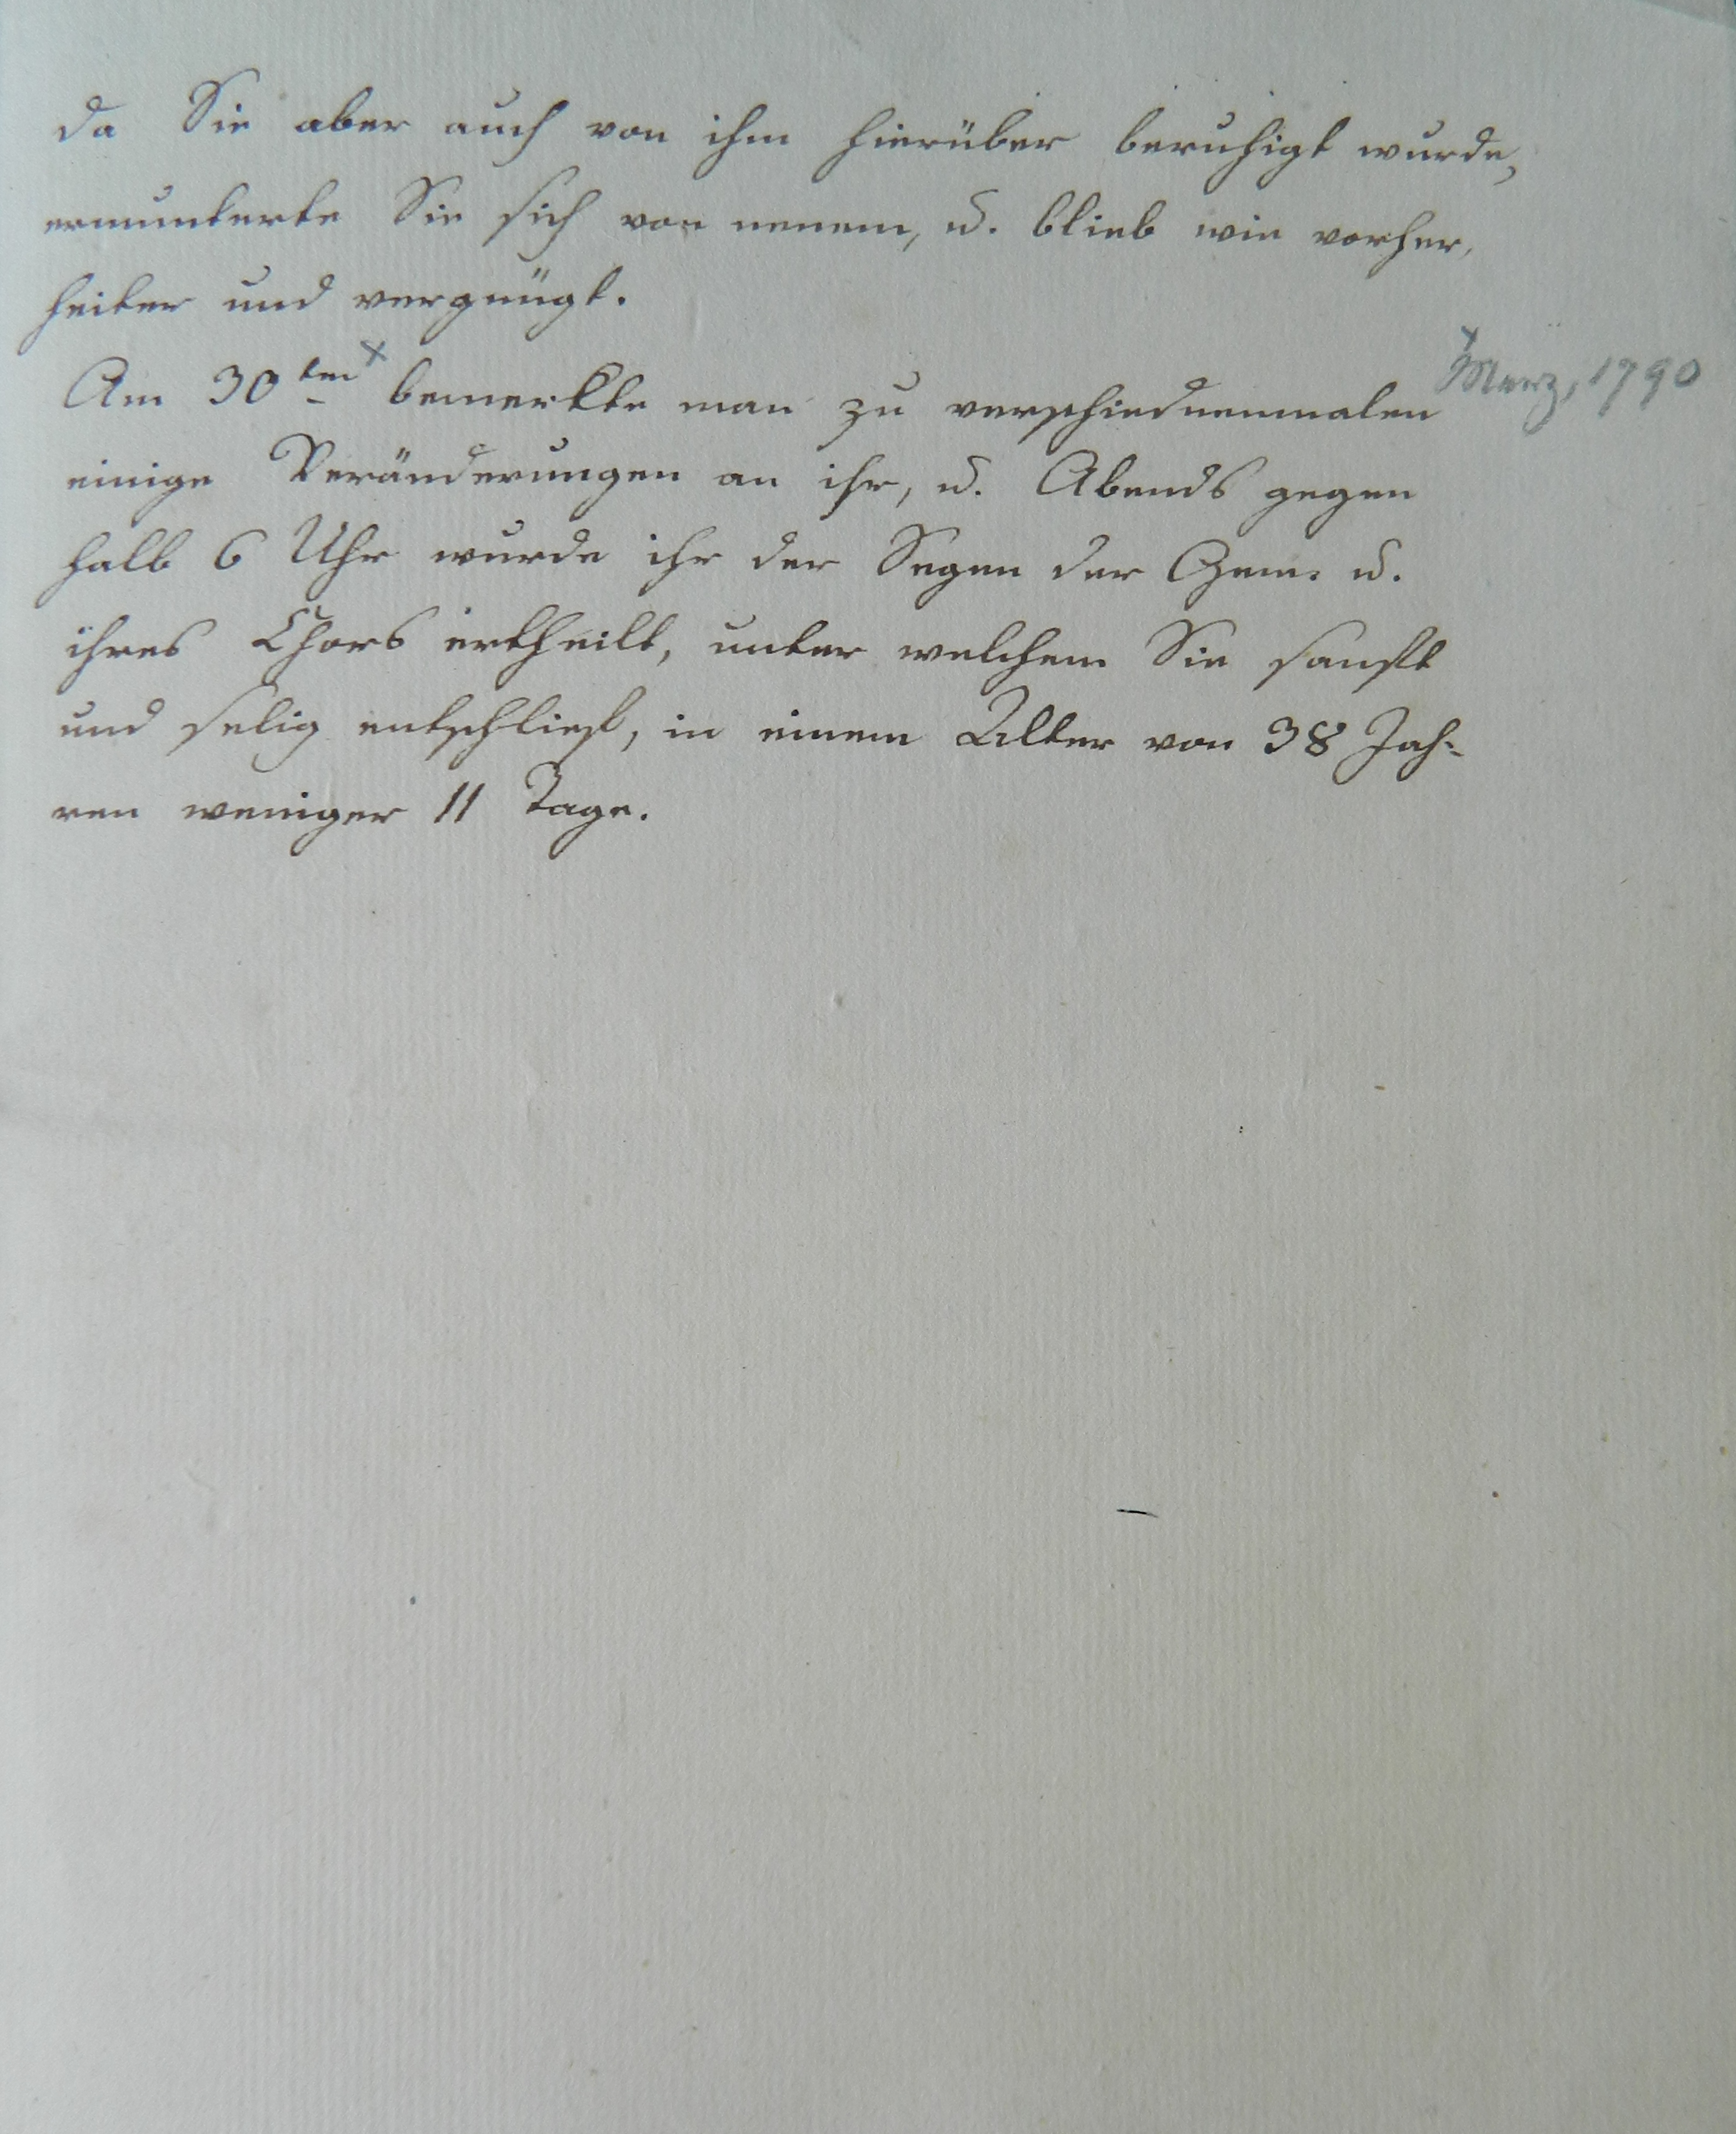 da Sie aber auch von ihm hierüber beruhigt wurde,
ermunterte Sie sich von neuem, u. blieb wie vorher,
heiter und vergnügt.
Am 30ten x bemerkte man zu verschiednenmalen
x Merz, 1790
einige Veränderungen an ihr, u. Abends gegen
halb 6 Uhr wurde ihr der Segen der Gem: u.
ihres Chors ertheilt, unter welchem Sie sanft
und selig entschlief, in einem Alter von 38 Jah-
ren weniger 11 Tage.